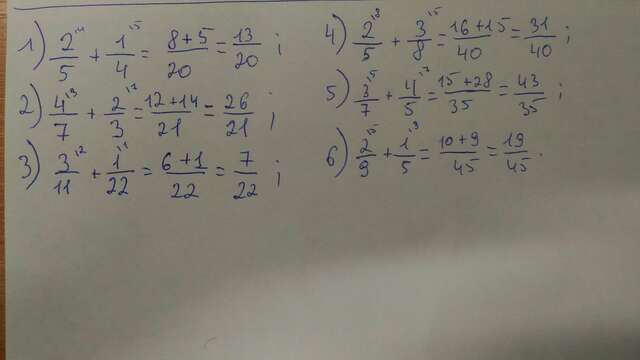 1) 2^4/5 + 1^5/4 = (8+5)/20 = 13/20 ;
2) 4^3/7 + 2^7/3 = (12+14)/21 = 26/21 ;
3) 3^2/11 + 1^1/22 = (6+1)/22 = 7/22 ;
4) 2^8/5 + 3^5/8 = (16+15)/40 = 31/40 ;
5) 3^5/7 + 4^7/5 = (15+28)/35 = 43/35 ;
6) 2^5/9 + 1^9/5 = (10+9)/45 = 19/45 .